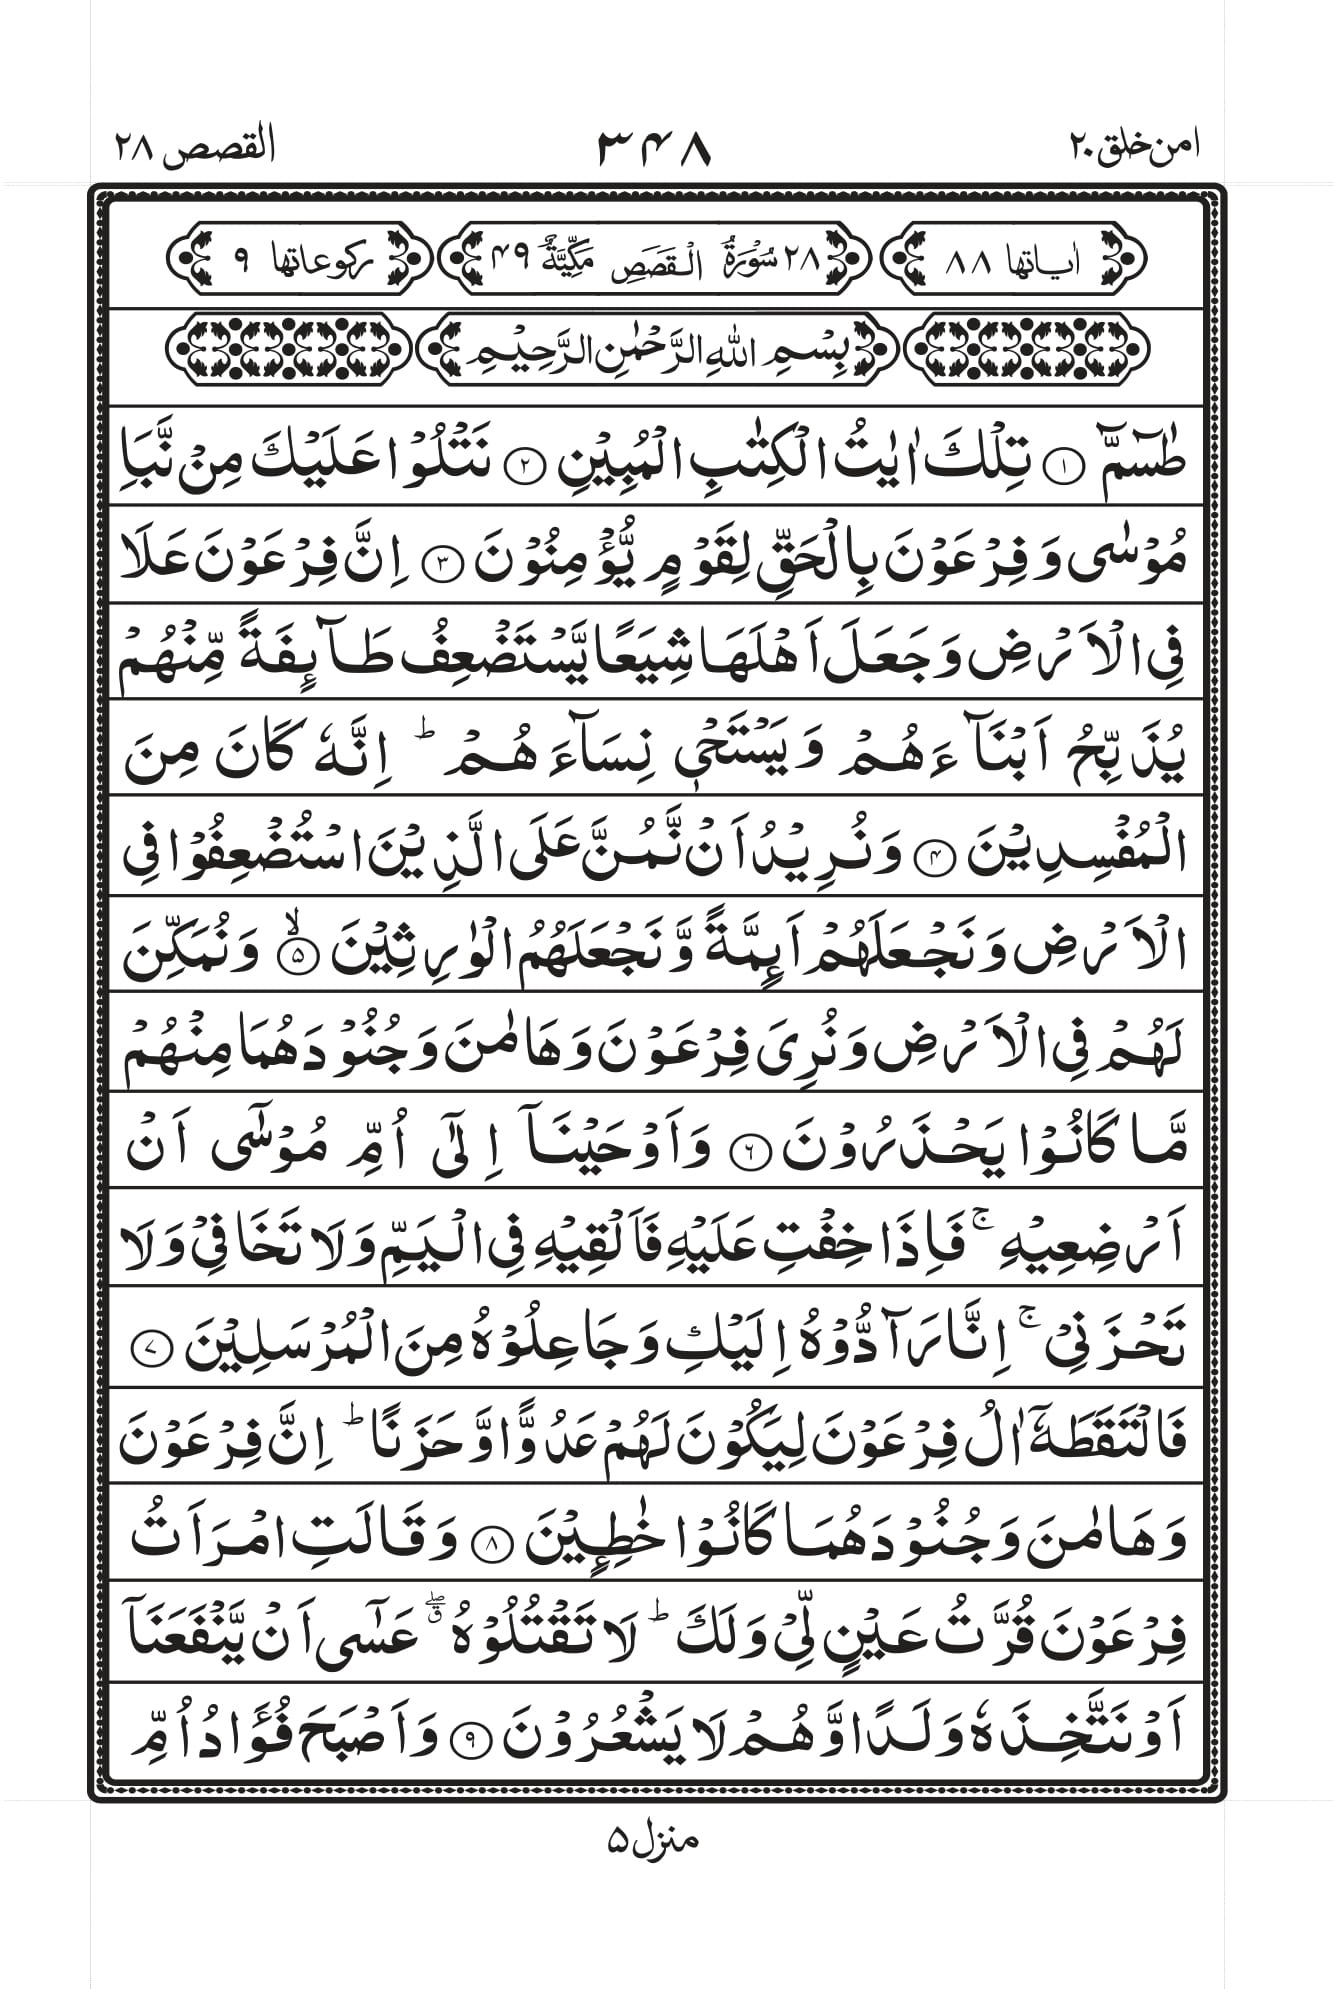 امن خلق ۲۰ ۳۴۸ القصص ۲۸
اٰیاتها ۸۸ ۲۸ سُوْرَةُ الْقَصَصِ مَكِّیَّةٌ ۴۹ ركوعاتها ۹
بِسْمِ اللّٰهِ الرَّحْمٰنِ الرَّحِیْمِ
طٰسٓمّٓ ۝۱ تِلْكَ اٰیٰتُ الْكِتٰبِ الْمُبِیْنِ ۝۲ نَتْلُوْا عَلَیْكَ مِنْ نَّبَاِ
مُوْسٰی وَ فِرْعَوْنَ بِالْحَقِّ لِقَوْمٍ یُّؤْمِنُوْنَ ۝۳ اِنَّ فِرْعَوْنَ عَلَا
فِی الْاَرْضِ وَ جَعَلَ اَهْلَهَا شِیَعًا یَّسْتَضْعِفُ طَآىِٕفَةً مِّنْهُمْ
یُذَبِّحُ اَبْنَآءَهُمْ وَ یَسْتَحْیٖ نِسَآءَهُمْ ؕ اِنَّهٗ كَانَ مِنَ
الْمُفْسِدِیْنَ ۝۴ وَ نُرِیْدُ اَنْ نَّمُنَّ عَلَی الَّذِیْنَ اسْتُضْعِفُوْا فِی
الْاَرْضِ وَ نَجْعَلَهُمْ اَىِٕمَّةً وَّ نَجْعَلَهُمُ الْوٰرِثِیْنَ ۝۵ۙ وَ نُمَكِّنَ
لَهُمْ فِی الْاَرْضِ وَ نُرِیَ فِرْعَوْنَ وَ هَامٰنَ وَ جُنُوْدَهُمَا مِنْهُمْ
مَّا كَانُوْا یَحْذَرُوْنَ ۝۶ وَ اَوْحَیْنَاۤ اِلٰۤی اُمِّ مُوْسٰۤی اَنْ
اَرْضِعِیْهِ ۚ فَاِذَا خِفْتِ عَلَیْهِ فَاَلْقِیْهِ فِی الْیَمِّ وَ لَا تَخَافِیْ وَ لَا
تَحْزَنِیْ ۚ اِنَّا رَآدُّوْهُ اِلَیْكِ وَ جَاعِلُوْهُ مِنَ الْمُرْسَلِیْنَ ۝۷
فَالْتَقَطَهٗۤ اٰلُ فِرْعَوْنَ لِیَكُوْنَ لَهُمْ عَدُوًّا وَّ حَزَنًا ؕ اِنَّ فِرْعَوْنَ
وَ هَامٰنَ وَ جُنُوْدَهُمَا كَانُوْا خٰطِـِٕیْنَ ۝۸ وَ قَالَتِ امْرَاَتُ
فِرْعَوْنَ قُرَّتُ عَیْنٍ لِّیْ وَ لَكَ ؕ لَا تَقْتُلُوْهُ ۖۗ عَسٰۤی اَنْ یَّنْفَعَنَاۤ
اَوْ نَتَّخِذَهٗ وَلَدًا وَّ هُمْ لَا یَشْعُرُوْنَ ۝۹ وَ اَصْبَحَ فُؤَادُ اُمِّ
منزل ۵